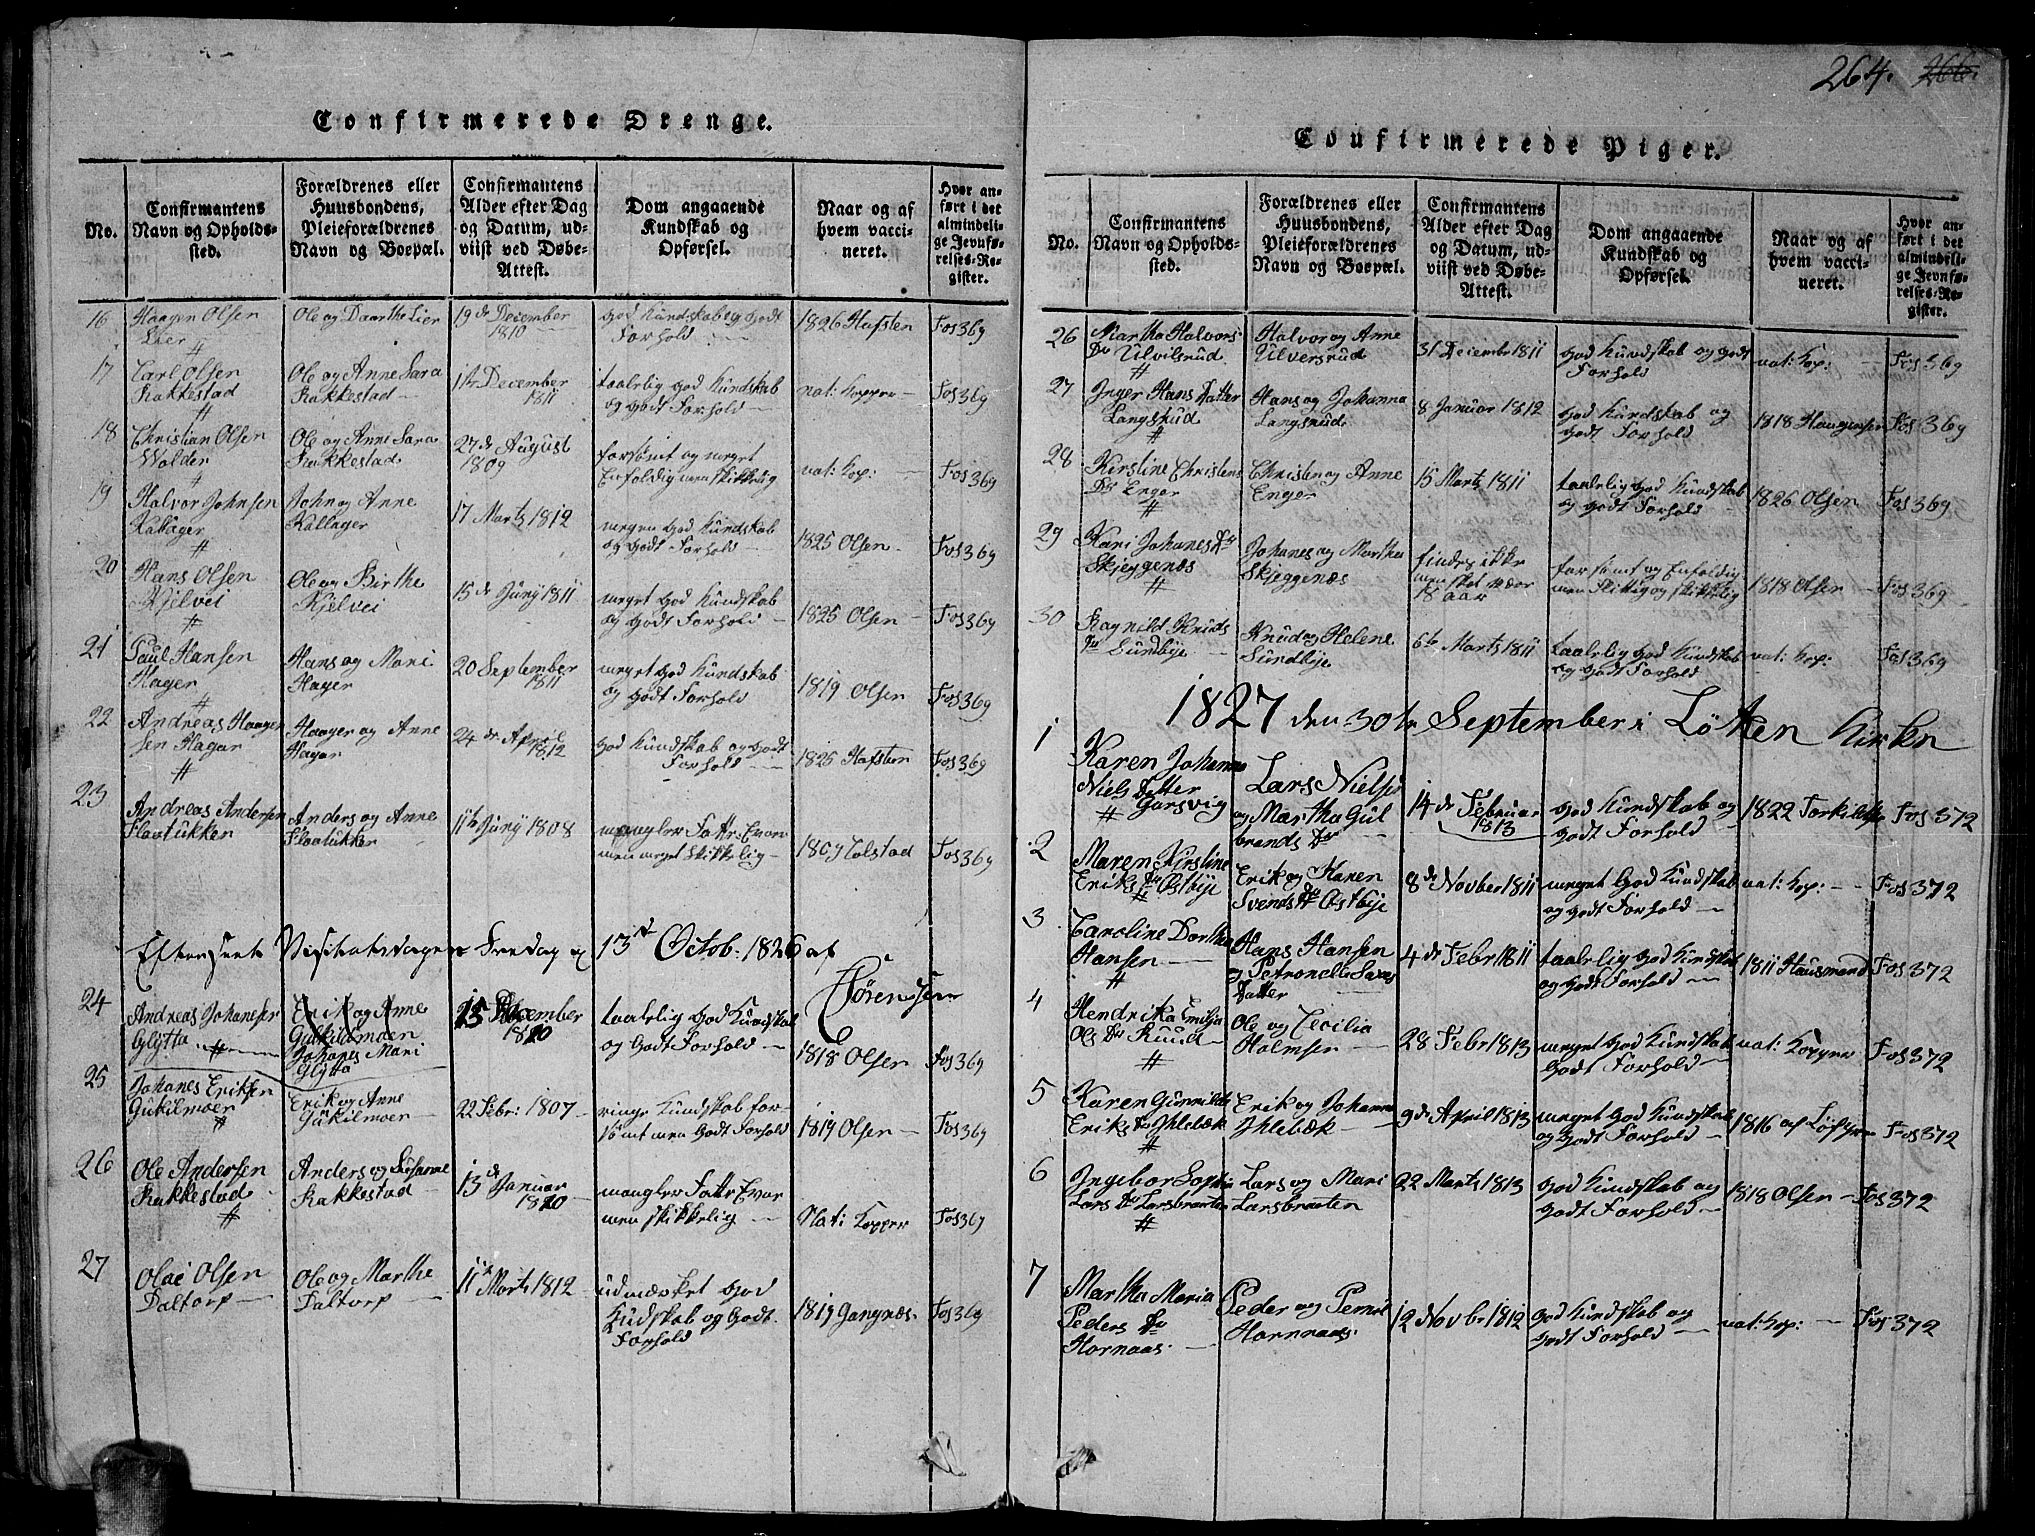 Confirmerede Drenge.
No.
Confirmantens
Navn og Opholds-
sted.
Forældrenes eller
Huusbondens,
Pleieforældrenes
Navn og Boepæl.
Confirmantens
Alder efter Dag
og Datum, ud-
viist ved Døbe-
Attest.
Dom angaaende
Kundskab og
Opførsel.
Naar og af
hvem vacci-
neret.
Hvor an-
ført i det
almindeli-
ge Jevnfø-
relses-Re-
gister.
16
Haagen Olsen
Lier
#
Ole og Daarthe Lier
19de December
1810
god Kundskab og godt
Forhold
1826 Hafsten
Fos 369
17
Carl Olsen
Rakkestad
#
Ole og Anne Sara
Rakkestad
1ste December
1811
taalelig god Kundskab
og godt Forhold
nat: Kopper
Fos 369
18
Christian Olsen
Walder
Ole og Anne Sara
Rakkestad
27de August
1809
forsømt og meget
Enfoldig men skikkelig
nat: Kop:
Fos 369
19
Halvor Johnsen
Kallager
#
John og Anne
Kallager
17 Marts 1812
megen god Kundskab
og godt Forhold
1825 Olsen
Fos 369
20
Hans Olsen
Kjelvei
#
Ole og Birthe
Kjelvei
15de Juny 1811
meget god Kundskab
og godt Forhold
1825 Olsen
Fos 369
21
Paul Hansen
Hager
#
Hans og Mari
Hager
20 September
1811
meget god Kundskab
og godt Forhold
1819 Olsen
Fos 369
22
Andreas Haagen
sen Hagar
#
Haagen og Anne
Hagar
24de April
1812
god Kundskab og godt
Forhold
1825 Hafsten
Fos 369
23
Andreas Andersen
Flaatukken
Anders og Anne
Flaatukken
11te Juny 1808
mangler Fatte Evne
men meget skikkelig
1809 Tolstad
Fos 369
Efterseete Visitatsdagen Fredag d 13de Octob: 1826 af
Sørensen
24
Andreas Johanesen
Glytta #
Erik og Anne
Gukilsmoen
Johanes Mari
Glytta
15 December
1810
taalelig god Kundskab
og godt Forhold
1818 Olsen
Fos 369
25
Johanes Eriksen
Gukilmoen
#
Erik og Anne
Gukilmoen
22 Febr: 1807
ringe Kundskab for-
sømt men godt Forhold
1819 Olsen
Fos 369
26
Ole Andersen
Rakkestad
#
Anders og Susanne
Rakkestad
13de Januar
1810
mangler Fatte Evne
men skikkelig
Nati Kopper
Fos 369
27
Olae Olsen
Daltorp
Ole og Marthe
Daltorp
11te Marts 1812
udmærket god
Kundskab og godt
Forhold
1819 Gangnæs
Fos 369
264. 266.
Confirmerede Piger.
No.
Confirmantens
Navn og Opholds-
sted.
Forældrenes eller
Huusbondens,
Pleieforældrenes
Navn og Boepæl.
Confirmantens
Alder efter Dag
og Datum, ud-
viist ved Døbe-
Attest.
Dom angaaende
Kundskab og
Opførsel.
Naar og af
hvem vacci-
neret.
Hvor an-
ført i det
almindeli-
ge Jevnfø-
relses-Re-
gister.
26
Martha Halvors
Dr Ulvilsrud
#
Halvor og Anne
Ulversrud
31 December 1811
god Kundskab og godt
Forhold
nat: Kop:
Fos 369
27
Inger Hans Datter
Langsrud
#
Hans og Johanna
Langsrud
8 Januar 1812
god Kundskab og
godt Forhold
1818 Haagensen
Fos 369
28
Kirstine Christens
Dr Enger
#
Christen og Anne
Enger
15 Marts 1811
taalelig god Kundskab
og godt Forhold
1826 Olsen
Fos 369
29
Kari Johanes Dr
Skjeggenæs
#
Johanes og Martha
Skjeggenæs
findes ikke
men skal være
18 aar
forsømt og Enfoldig
men flittig og skikkelig
1818 Olsen
Fos 369
30
Ragnild Knuds
Dr Sundbye
Knud og Helene
Sundbye
6te Marts 1811
taalelig god Kundskab
og godt Forhold
nat: Kop:
Fos 369
1827 den 30te September i Løtten Kirke
1
Karen Johanna
Niels Datter
# Garsvig
Lars Nielsen
og Martha Gul
brands Dr
14de Februar
1813
god Kundskab og
godt Forhold
1822 Torkildsen
Fos 372
2
Maren Kirstine
Eriks Dr Østbye
#
Erik og Karen
Svends Dr Østbye
8de Novber 1811
meget god Kundskab
og godt Forhold
nat: Kop:
Fos 372
3
Caroline Dorthea
Hansen
#
Hans Hansen
og Petronelle Lars
Datter
4de Febr 1811
taalelig god Kundskab
og godt Forhold
1811 Hausmand
Fos 372
4
Hendrika Emilja
Ols Dr Ruud
#
Ole og Cecilia
Holmsen
28 Febr 1813
meget god Kundskab
godt Forhold
nat: Kopper
Fos 372
5
Karen Gunnilde
Eriks Dr Ihlebæk
#
Erik og Johanna
Ihlebæk
9de April 1813
meget god Kundskab
og godt Forhold
1816 af Løftgren
Fos 372
6
Ingebor Sophie
Lars Dr Larsbraaten
#
Lars og Mari
Larsbraaten
22 Marts 1813
god Kundskab og
godt Forhold
1818 Olsen
Fos 372
7
Martha Maria
Peders Dr
Hornaas
Peder og Pernil
Hornaas
12 Novbr 1812
god Kundskab og
godt Forhold
nat: Kop:
Fos 372